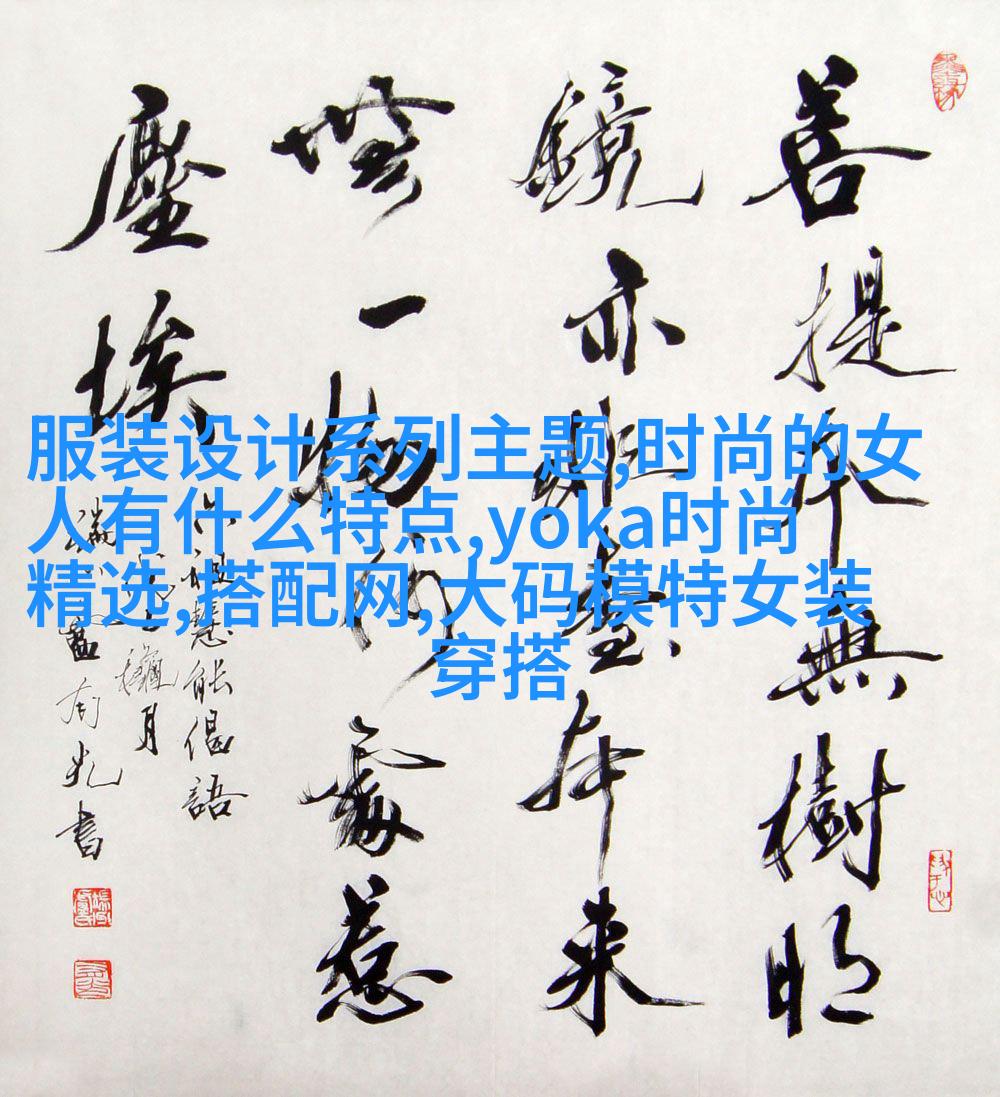 服装设计系列主题,时尚的女
人有什么特点,yoka时尚
精选,搭配网,大码模特女装
穿搭
菩提本無樹明
鏡亦非臺本来
無一物何處惹
塵埃
慧能偈語
月
書